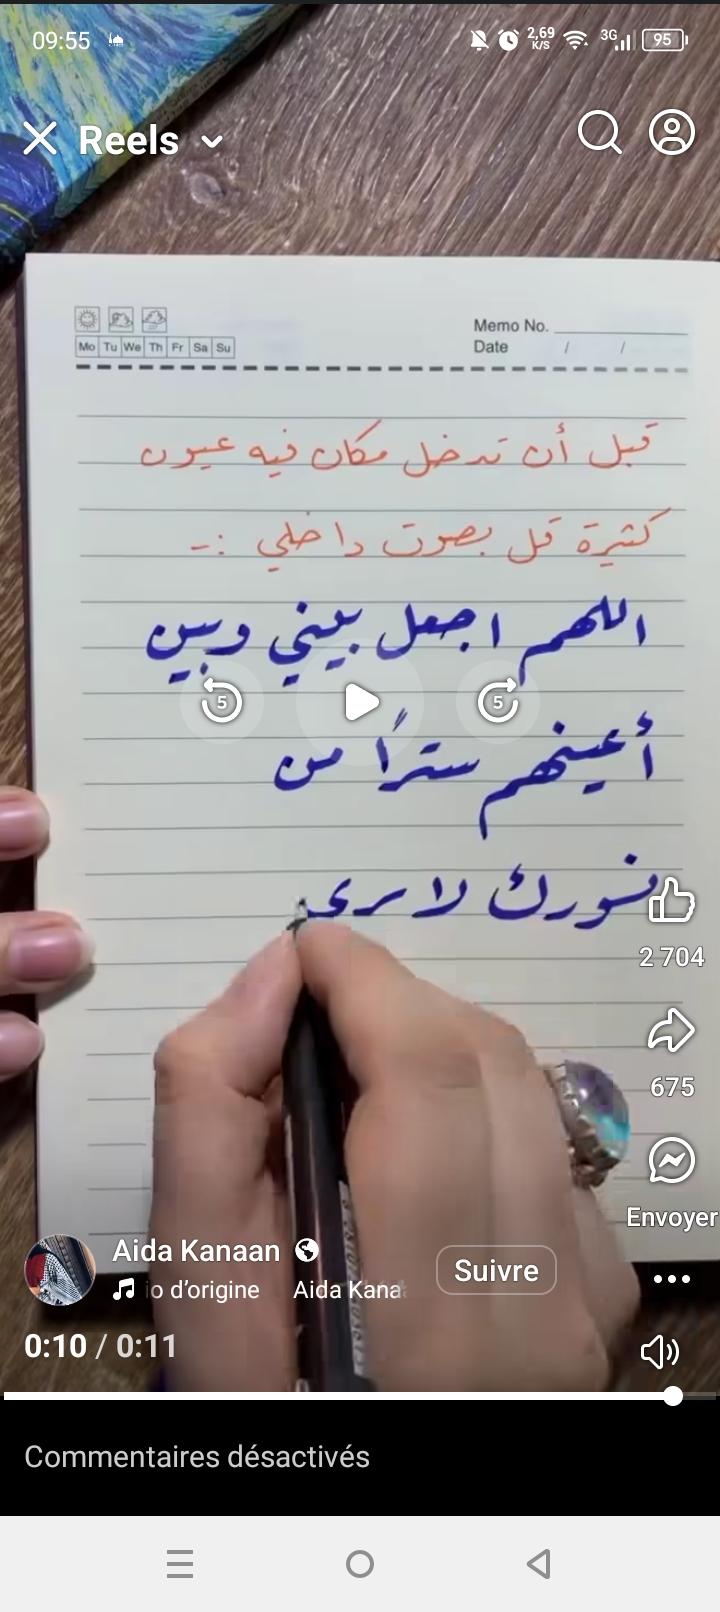 09:55
2,69 K/S
3G
95
Reels
Memo No.
Mo Tu We Th Fr Sa Su
Date / /
قبل أن تدخل مكان فيه عيون
كثيرة قل بصوت داخلي :-
اللهم اجعل بيني وبين
5
5
أعينهم سترًا من
نورك لا يرى
2 704
675
Envoyer
Aida Kanaan
Suivre
io d'origine Aida Kana
0:10 / 0:11
Commentaires désactivés